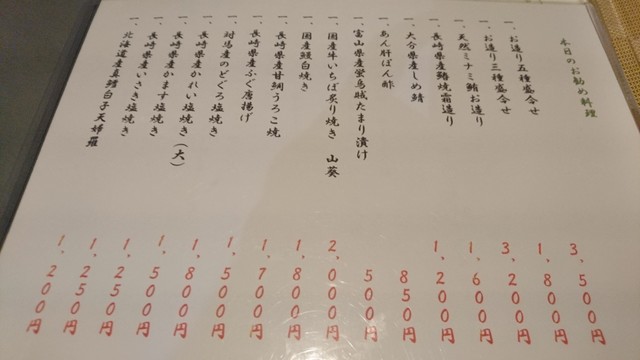 本日のお勧め料理
一、お造り五種盛合せ 3,500円
一、お造り三種盛合せ 1,800円
一、天然ミナミ鮪お造り 3,200円
一、長崎県産鰆焼霜造り 1,600円
一、大分県産しめ鯖 1,200円
一、あん肝ぽん酢 850円
一、富山県産蛍烏賊たまり漬け 500円
一、国産牛いちぼ炙り焼き 山葵 2,000円
一、国産鰻白焼き 1,800円
一、長崎県産甘鯛うろこ焼 1,700円
一、長崎県産ふぐ唐揚げ 1,500円
一、対馬産のどぐろ塩焼き 1,800円
一、長崎県産かれい塩焼き 1,500円
一、長崎県産かます塩焼き(大) 1,250円
一、長崎県産いさき塩焼き 1,250円
一、北海道産真鱈白子天婦羅 1,200円